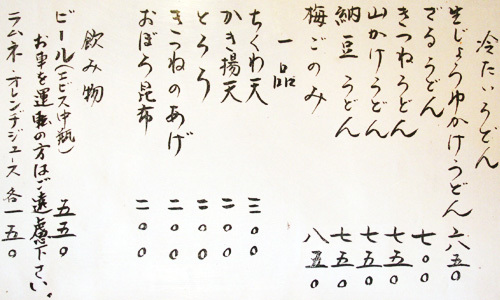 冷たいうどん
生じょうゆかけうどん 六五〇
ざるうどん 七〇〇
きつねうどん 七五〇
山かけうどん 七五〇
納豆うどん 七五〇
梅ごのみ 八五〇
一品
ちくわ天 三〇〇
かき揚天 二〇〇
とろろ 二〇〇
きつねのあげ 二〇〇
おぼろ昆布 二〇〇
飲み物
ビール(エビス中瓶) 五五〇
お車を運転の方はご遠慮下さい。
ラムネ・オレンチジュース 各一五〇